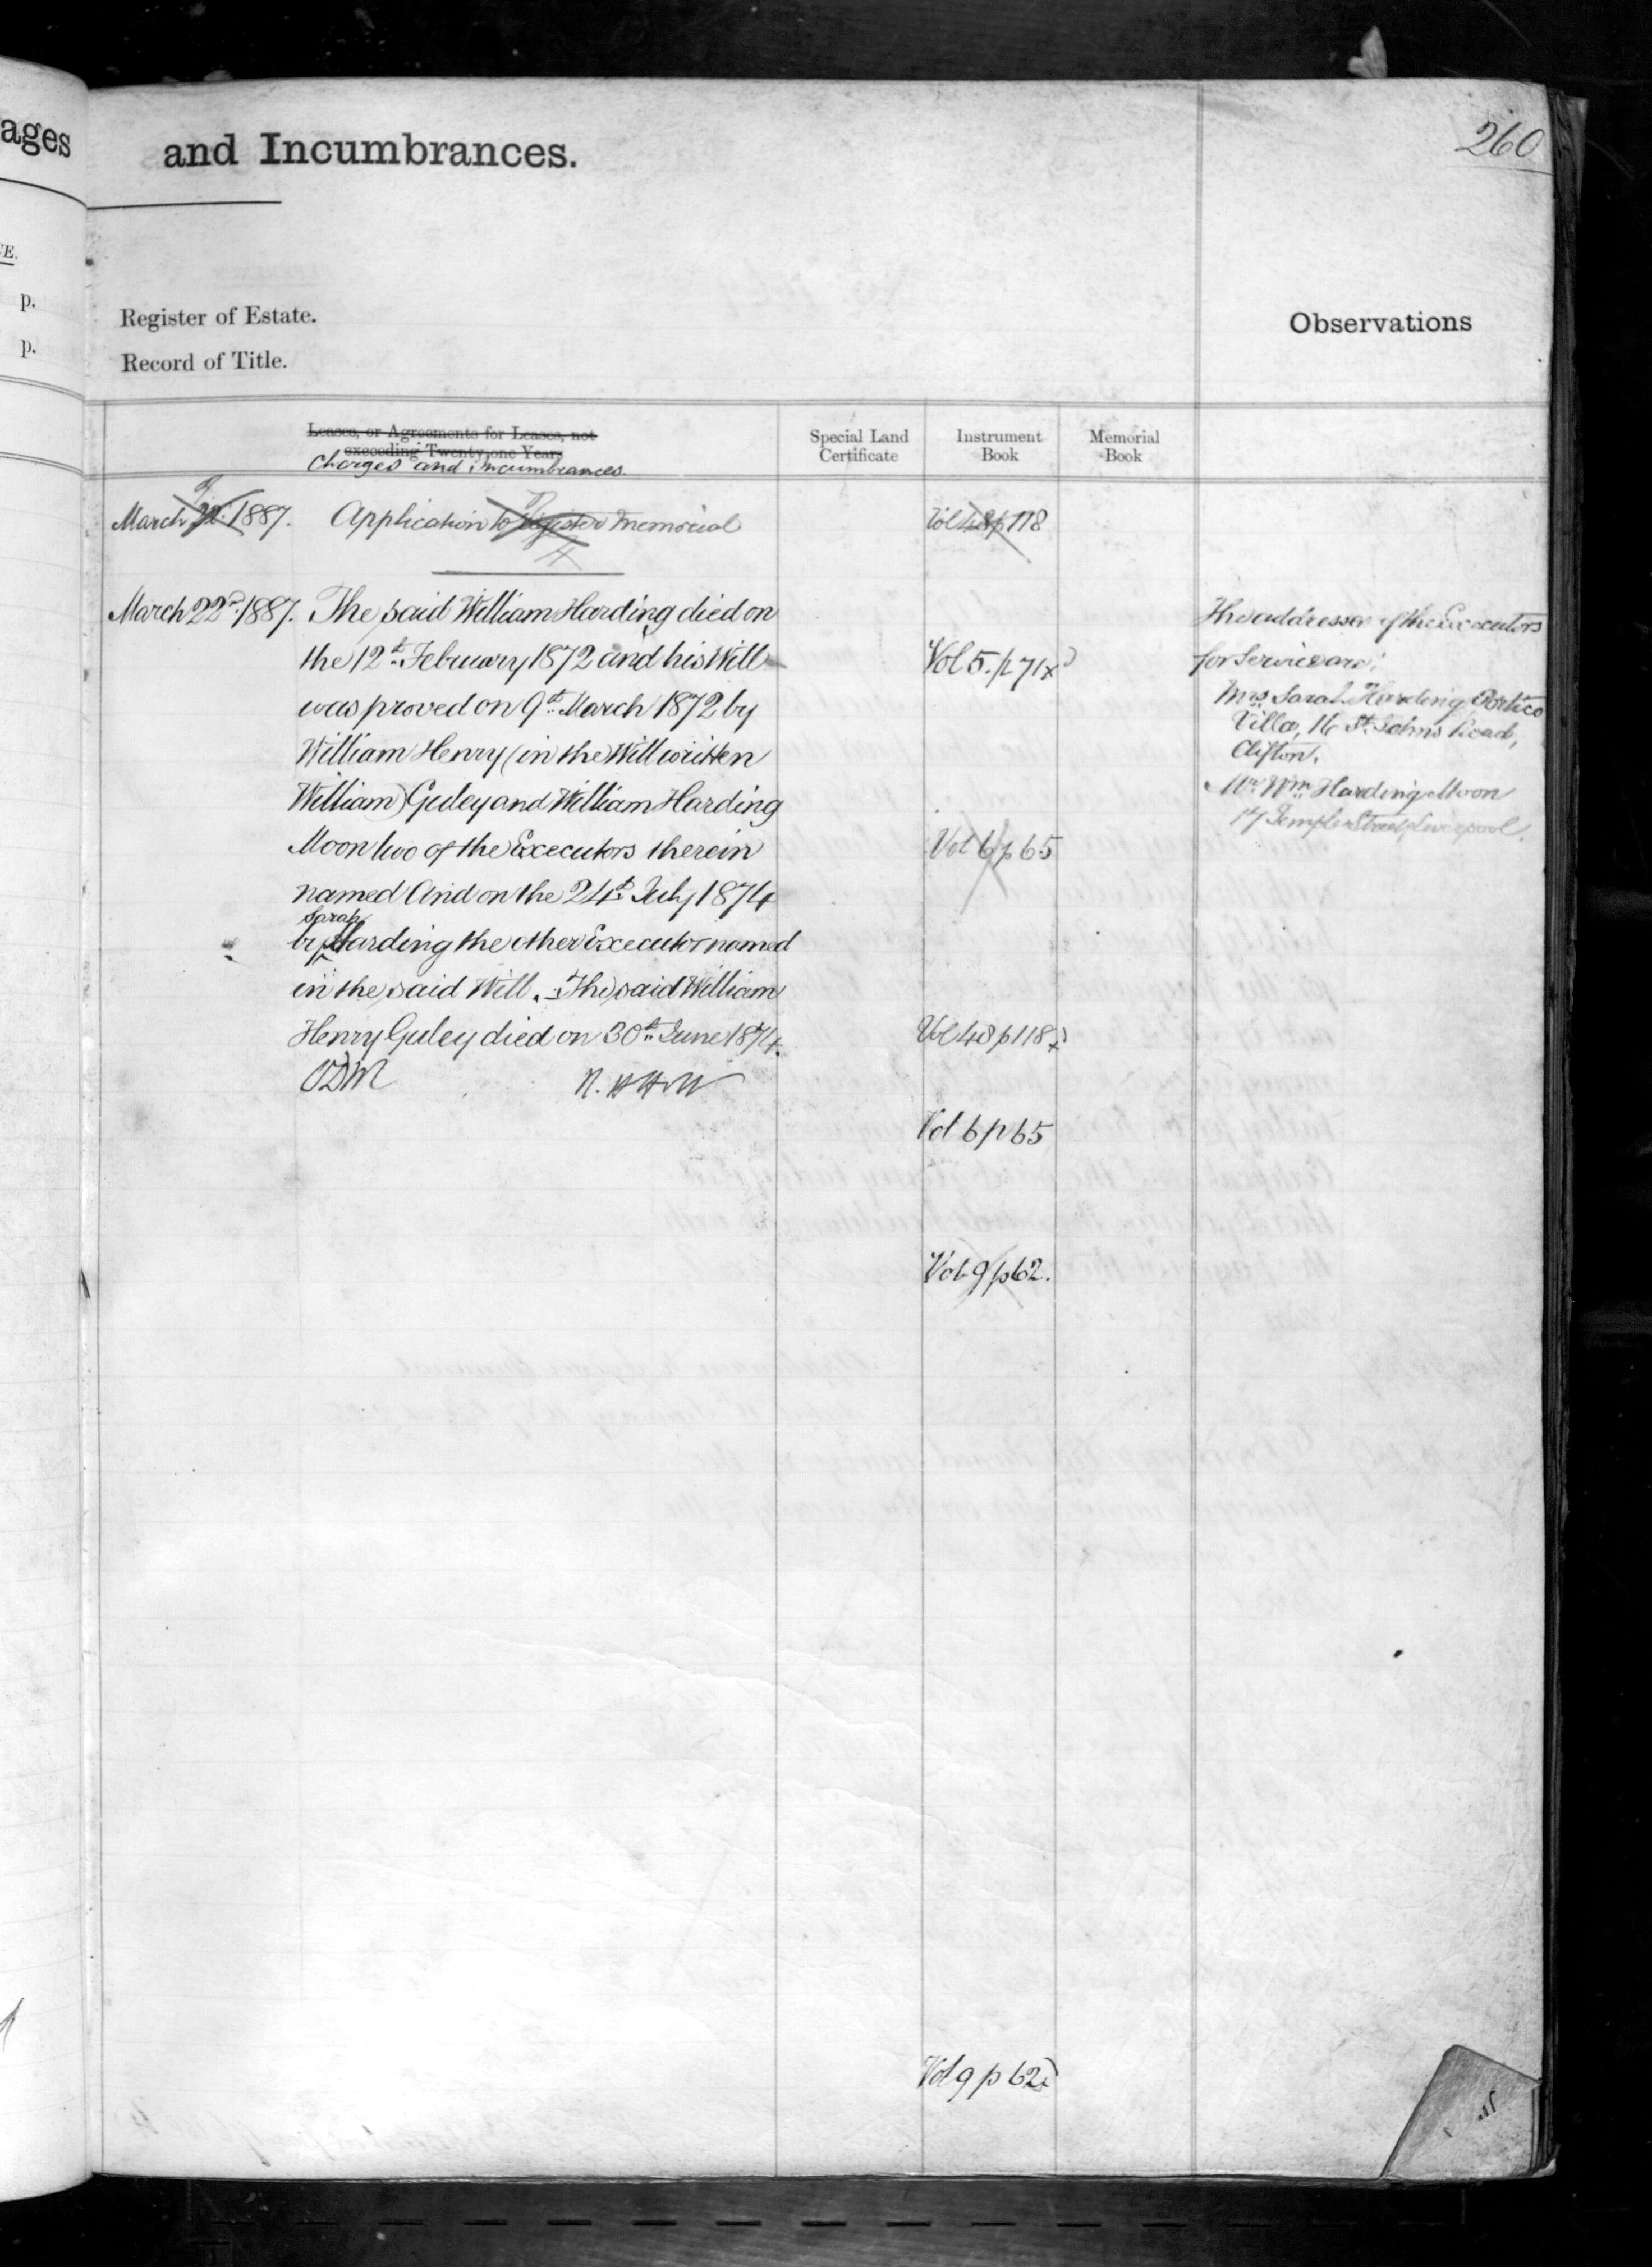 ages
and Incumbrances.
260
E.
p.
Register of Estate.
Observations
p.
Record of Title.
Leases, or Agreements for Leases, not
exceeding Twenty one Years
Charges and incumbrances.
Special Land
Certificate
Instrument
Book
Memorial
Book
March 22. 1887. Application to Register Memorial Vol 48 p 118
March 22nd. 1887. The said William Harding died on
the 12th February 1872 and his Will
was proved on 9th March 1872 by
William Henry (in the Will written
William) Guley and William Harding
Moon two of the Executors therein
named And on the 24th July 1874
Sarah
by Harding the other Executor named
in the said Will. The said William
Henry Guley died on 30th June 1874.
Vol 5. p 71
Vol 6 p 65
Vol 48 p 118
Vol 6 p 65
Vol 9 p 62.
Vol 9 p 62
The addresses of the Executors
for Service are:
Mrs Sarah Harding Portico
Villa, 16 St Johns Road,
Clifton.
Mr Wm Harding Moon
17 Temple Street, Liverpool.